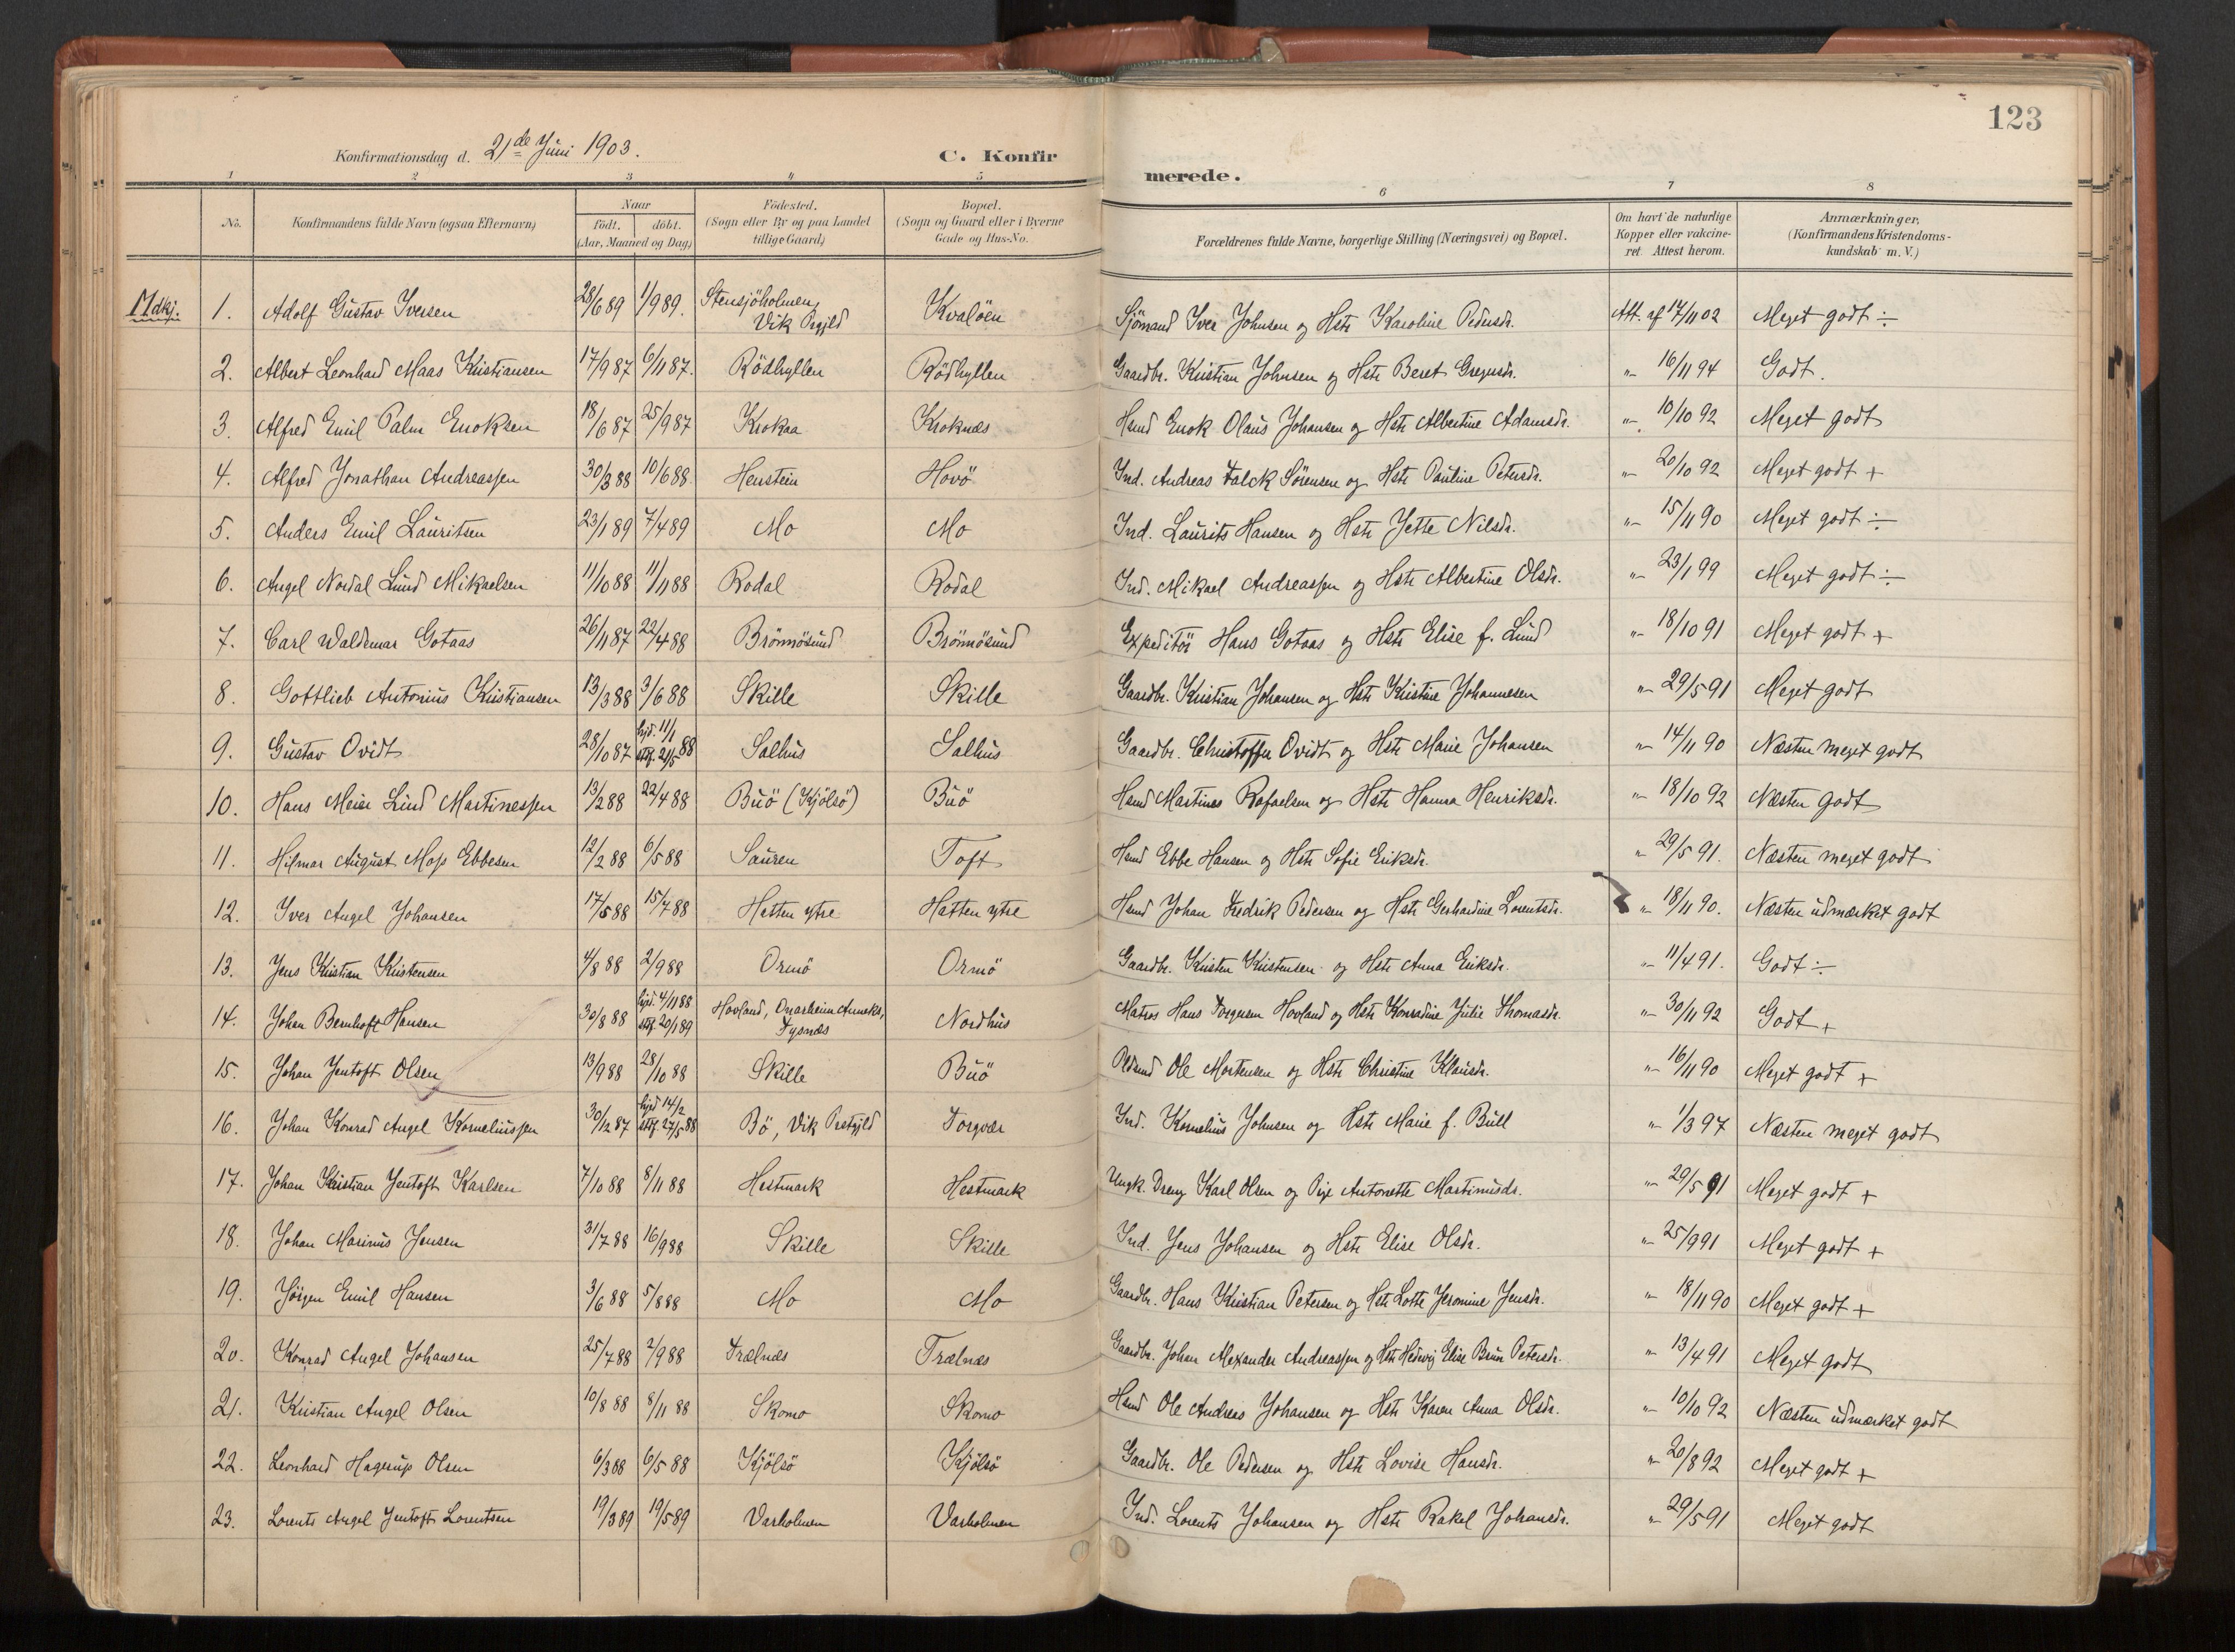 123
Konfirmationsdag d. 21de Juni 1903.
C. Konfirmerede.
1 2 3 4 5 6 7 8
No.
Konfirmandens fulde Navn (ogsaa Efternavn)
Naar
födt. döbt.
(Aar, Maaned og Dag)
Födested.
(Sogn eller By og paa Landet
tillige Gaard)
Bopæl.
(Sogn og Gaard eller i Byerne
Gade og Hus-No.
Forældrenes fulde Navne, borgerlige Stilling (Næringsvei) og Bopæl.
Om havt de naturlige
Kopper eller vakcine-
ret. Attest herom.
Anmærkninger,
(Konfirmandens Kristendoms-
kundskab m. V.)
Mdkj. 1. Adolf Gustav Iversen 28/6 89 1/9 89. Stensjöholmen, Vik Prgjld Kvalöen Sjömand Iver Johnsen og Hstr Karoline Pedersdr. Att. af 17/11 02 Meget godt ÷
2. Albert Leonhard Maas Kristiansen 17/9 87 6/11 87. Rödhyllen Rödhyllen Gaardbr. Kristian Johnsen og Hstr Beret Gregusdr. „- 16/11 94 Godt.
3. Alfred Emil Palm Enoksen 18/6 87 25/9 87 Krokaa Kroknæs Hsmd Enok Olaus Johansen og Hstr Albertine Adamsdr. „- 10/10 92 Meget godt
4. Alfred Jonathan Andreassen 30/3 88 10/6 88 Henstein Hovö Ind. Andreas Falck Sörensen og Hstr Pauline Petersdr. „- 20/10 92 Meget godt +
5. Anders Emil Lauritsen 23/1 89 7/4 89 Mo Mo Ind. Laurits Hansen og Hstr Jette Nilsdr. „- 15/11 90 Meget godt ÷
6. Angel Nordal Lund Mikaelsen 11/10 88 11/11 88 Rodal Rodal Ind. Mikael Andreassen og Hstr Albertine Olsdr. „- 23/1 99 Meget godt ÷
7. Carl Waldemar Gotaas 26/11 87 22/4 88 Brönnösund Brönnösund Expeditör Hans Gotaas og Hstr Elise f. Lund „- 18/10 91 Meget godt +
8. Gottlieb Antonius Kristiansen 13/3 88 3/6 88 Skille Skille Gaardbr. Kristian Johansen og Hstr Kristine Johannesen „- 29/5 91 Meget godt
9. Gustav Ovidt 28/10 87 hjd. 11/1 stf. 21/5 88 Salhus Salhus Gaardbr. Christoffer Ovidt og Hstr Marie Johansen „- 14/11 90 Næsten meget godt
10. Hans Meier Lind Martinessen 13/2 88 22/4 88 Buö (Kjölsö) Buö Hsmd Martines Rafaelsen og Hstr Hanna Henriksdr. „- 18/10 92 Næsten godt
11. Hilmar August Moss Ebbesen 12/2 88 6/5 88 Sauren Toft Hsmd Ebbe Hansen og Hstr Sofie Eriksdr. „ 29/5 91. Næsten meget godt
12. Iver Angel Johansen 17/5 88 15/7 88 Hatten ytre Hatten ytre Hsmd Johan Fredrik Pedersen og Hstr Gerhardine Lorentsdr. „- 18/11 90. Næsten udmærket godt
13. Jens Kristian Kristensen 4/8 88 2/9 88 Ormö Ormö Gaardbr. Kristen Kristensen og Hstr Anna Eriksdr. „- 11/4 91. Godt ÷
14. Johan Bernhoft Hansen 30/8 88 hjd. 4/11 88 stf. 20/1 89 Hovland, Onarheim Anneks, Tysnæs Nordhus Matros Hans Torgusen Hovland og Hstr Konradine Julie Thomasdr. „- 30/11 92 Godt +
15. Johan Jentoft Olsen 13/9 88 28/10 88 Skille Buö Pldsmd Ole Mortensen og Hstr Christine Klausdr. „- 16/11 90 Meget godt +
16. Johan Konrad Angel Korneliussen 30/12 87 hjd 14/2 stf 27/5 88 Bö, Vik Prstgjld Torgvær Ind. Kornelius Johnsen og Hstr Marie f. Bull „- 1/3 97 Næsten meget godt
17. Johan Kristian Jentoft Karlsen 7/10 88 8/11 88 Hestmark Hestmark Ungk. Dreng Karl Olsen og Pige Antonette Martinusdr. „- 29/5 91 Meget godt +
18. Johan Marinus Jensen 31/7 88 16/9 88 Skille Skille Ind. Jens Johansen og Hstr Elise Olsdr. „- 25/9 91 Meget godt +
19. Jörgen Emil Hansen 3/6 88 5/8 88 Mo Mo Gaardbr. Hans Kristian Petersen og Hstr Lotte Jeromine Jensdr. „- 18/11 90 Meget godt +
20. Konrad Angel Johansen 25/7 88 2/9 88 Trælnæs Trælnæs Gaardbr. Johan Alexander Andreassen og Hstr Hedevig Elise Brun Petersdr. „- 13/4 91 Meget godt
21. Kristian Angel Olsen 10/8 88 8/11 88 Skomo Skomo Hsmd Ole Andreas Johansen og Hstr Karen Anna Olsdr. „- 10/10 92 Næsten udmærket godt
22. Leonhard Hagerup Olsen 6/3 88 6/5 88 Kjölsö Kjölsö Gaardbr. Ole Pedersen og Hstr Lovise Hansdr. „- 20/8 92 Meget godt +
23. Lorents Angel Jentoft Lorentsen 19/3 89 19/5 89 Varholmen Varholmen Ind. Lorents Johansen og Hstr Rakel Johansdr. „- 29/5 91 Meget godt